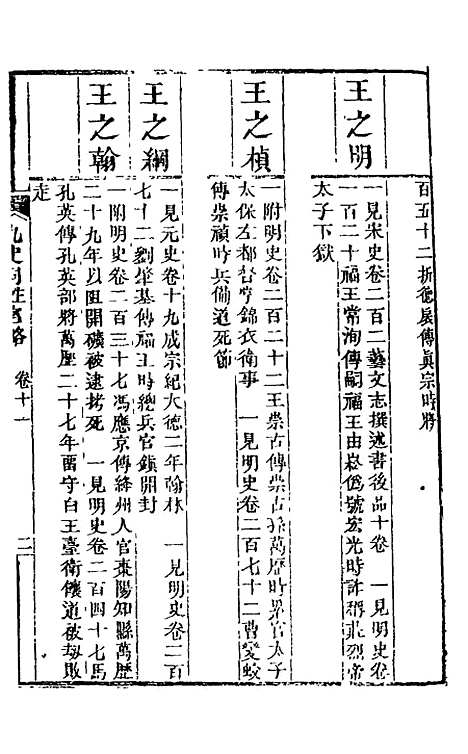 百五十二折德扆傳眞宗時將
王之明
一見宋史卷二百二藝文志撰述書後品十卷　一見明史卷
一百二十福王常洵傳嗣福王由崧僞號宏光時詐稱莊烈帝
太子下獄
王之楨
一附明史卷二百二十二王崇古傳崇古孫萬歷時累官太子
太保左都督掌錦衣衛事　一見明史卷二百七十二曹變蛟
傳崇禎時兵備道死節
王之綱
一見元史卷十九成宗紀大德二年翰林　一見明史卷二百
七十二劉肇基傳福王時總兵官鎭開封
王之翰
一附明史卷二百三十七馮應京傳絳州人官棗陽知縣萬歷
二十九年以阻開礦被逮拷死　一見明史卷二百四十七馬
孔英傳孔英部將萬歷二十七年畱守白王臺衛饟道被劫敗
走
九史同姓名略
卷十一
二